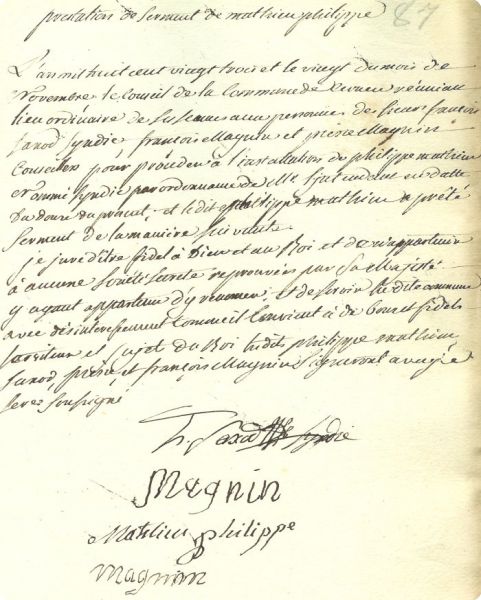 prestation de serment de mathieu philippe 87
L'an mil huit cent vingt trois et le vingt du mois de
Novembre le Conseil de la Commune de réuni au
lieu ordinaire de ses aux personnes de sieur françois
Sanod Syndic françois Magnin et pierre Magnin
Conseiller pour procéder à l'installation de philippe mathieu
nommé Syndic par ordonnance de Mr l'intendant en datte
du douze du prt, et ledit philippe mathieu a prété
Serment de la manière suivante
je jure d'être fidel à Dieu et au Roi et de n'appartenir
à aucune Société Secrete reprouvée par Sa Majesté
y ayant appartenu d'y renoncer, et de servir ladite commune
avec désinteressement comme il convient à de bon et fidels
serviteur et sujet du Roi lesdits philippe mathieu
Sanod, pierre, et françois Magnin signeront avec
soussigné
f. Sanod Syndic
Magnin
Mathieu philippe
Magnin